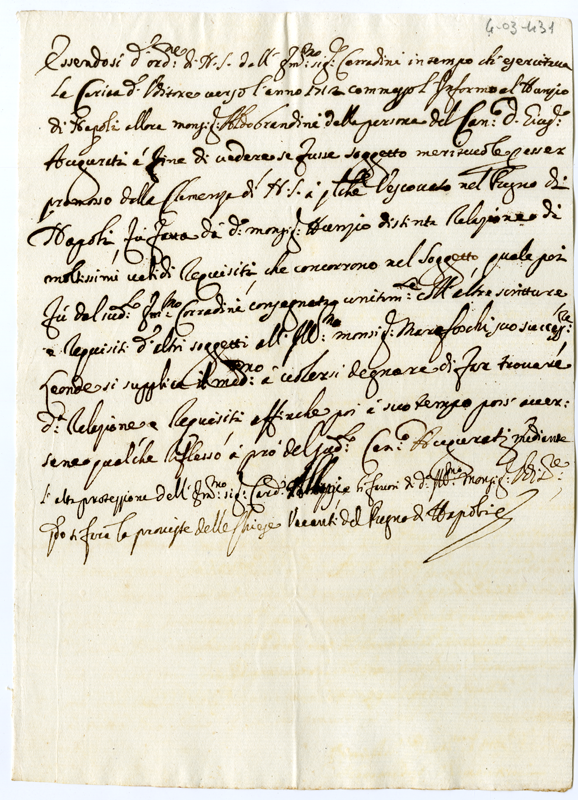 4-03-431
Essendosi d'ord:ne di N.S. dall' Em:mo sig:r Corradini in tempo ch'esercitava
la Carica d'Uditore verso l'anno 1712 commesso l'Informo al Nunzio
di Napoli allora monsig:r Aldobrandini della persona del Can:co D.
Accurati à fine di vedere se fusse soggetto meritevole d'esser
promosso dalla Clemenza di N.S. à qlche Vescovato nel Regno di
Napoli fù fatta da d:o monsig:r Nunzio distinta Relazione di
moltissimi validi Requisiti che concorrono nel Soggetto quale poi
fù dal sud:o Em:mo Corradini consegnata unitm:e coll'altre scritture
e Requisiti d'altri soggetti all' Ill:mo monsig:r Marefoschi suo success:re
Leonde si supplica il med:mo à volersi degnare di far trovare
d:a Relazione e Requisiti affinche poi à suo tempo poss' aver-
sene qualche riflesso à prò del sud:o Can:co Accurati mediante
l'alta protezzione dell' Em:mo sig:r Card: e li favori di d:o Ill:mo Monsig:r
qdo si farà la provista delle Chiese Vacanti del Regno di Napoli